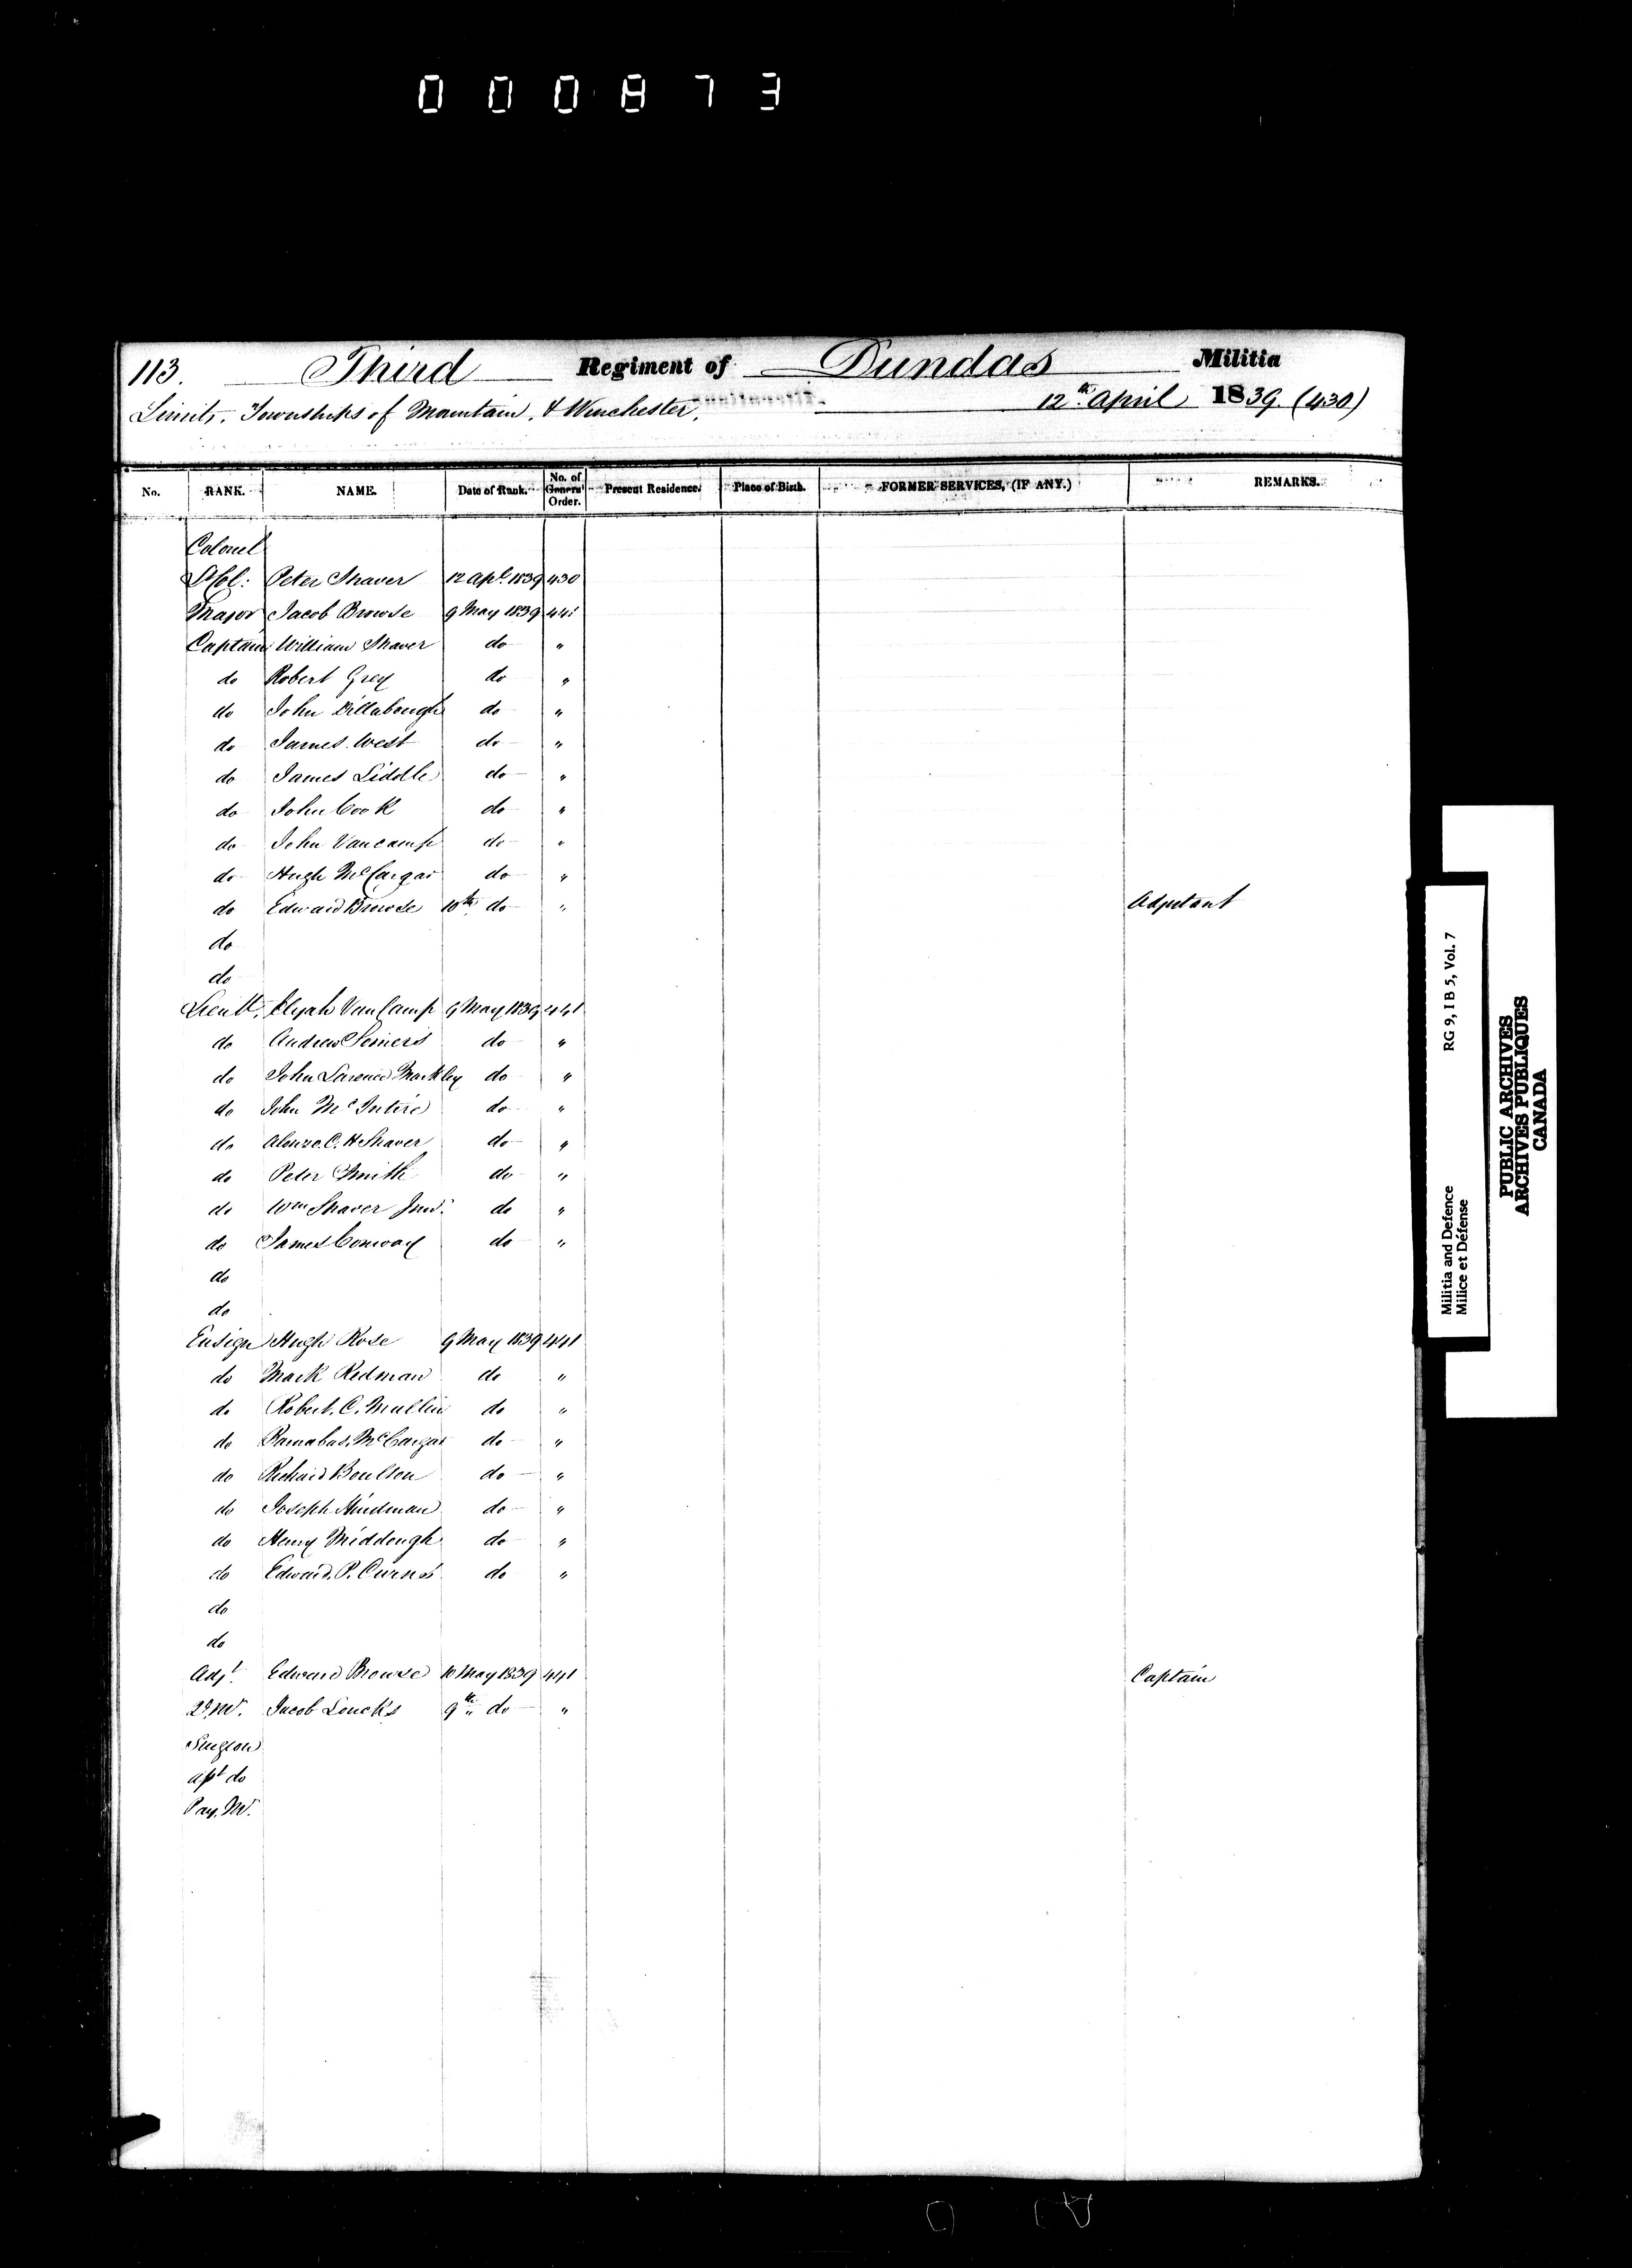 000873
113. Third Regiment of Dundas Militia
Limits. Townships of Mountain, & Winchester, 12th April 1839. (430)
No. RANK. NAME. Date of Rank. No. of General Order. Present Residence. Place of Birth. FORMER SERVICES, (IF ANY.) REMARKS.
Colonel
Lt Col: Peter Shaver 12 Apl. 1839 430
Major Jacob Browse 9 May 1839 441
Captain William Shaver do "
do Robert Grey do "
do John Dillabough do "
do James West do "
do James Liddle do "
do John Cook do "
do John Vancamp do "
do Hugh McCargar do "
do Edward Browse 10th do " Adjutant
do
do
Lieutt. Elijah VanCamp 9 May 1839 441
do Andrew Somers do "
do John Markley do "
do John McIntire do "
do Alonzo. C. H Shaver do "
do Peter Smith do "
do Wm Shaver Junr. do "
do James Conway do "
do
do
Ensign Hugh Rose 9 May 1839 441
do Mark Redman do "
do Robert. C. Mullin do "
do Barnabas. McCargar do "
do Richard Boulton do "
do Joseph Hindman do "
do Henry Middough do "
do Edward. P. do "
do
do
Adjt. Edward Browse 10 May 1839 441 Captain
Q. Mr. Jacob Loucks 9th do "
Surgeon
Asst do
Pay. Mr.
Militia and Defence RG 9, I B 5, Vol. 7
Milice et Défense
PUBLIC ARCHIVES
ARCHIVES PUBLIQUES
CANADA